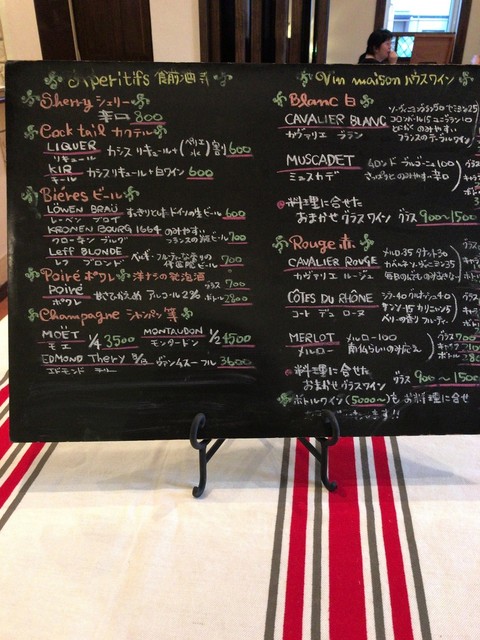 Aperitifs 食前酒
Sherry シェリー
辛口 800
Cocktail カクテル
LIQUER カシスリキュール+(ペリエ 水)割 600
リキュール
KIR カシスリキュール+白ワイン 600
キール
Biéres ビール
LÖWEN BRAÜ すっきりとしたドイツの生ビール 600
レーベン ブロイ
KRONEN BOURG 1664 のみやすい
クローネン ブルグ フランスの瓶ビール 700
Leff BLONDE ベルギー フルーティな香りの
レフ ブロンド 伝統的ビール 700
Poiré ポワレ 洋なしの発泡酒
Poiré アルコール2% グラス 700
ポワレ ボトル 2800
Champagne シャンパン等
MOËT 1/4 3500 MONTAUDON 1/2 4500
モエ モンタードン
EDMOND Thery ヴァンムスーフル 3600
エドモンド テリー
Vin maison ハウスワイン
Blanc 白
CAVALIER BLANC
カヴァリエ ブラン
フランスのテーブルワイン
MUSCADET
ミュスカデ
料理に合せた
おまかせグラスワイン グラス 900~1500
Rouge 赤
CAVALIER ROUGE メルロ・35 タナット30
カヴァリエ ルージュ
CÔTES DU RHÔNE
コート デュ ローヌ
MERLOT メルロー100 グラス 700
メルロー
料理に合せた
おまかせグラスワイン グラス 900~1500
ボトルワイン(5000~)も お料理に合せ